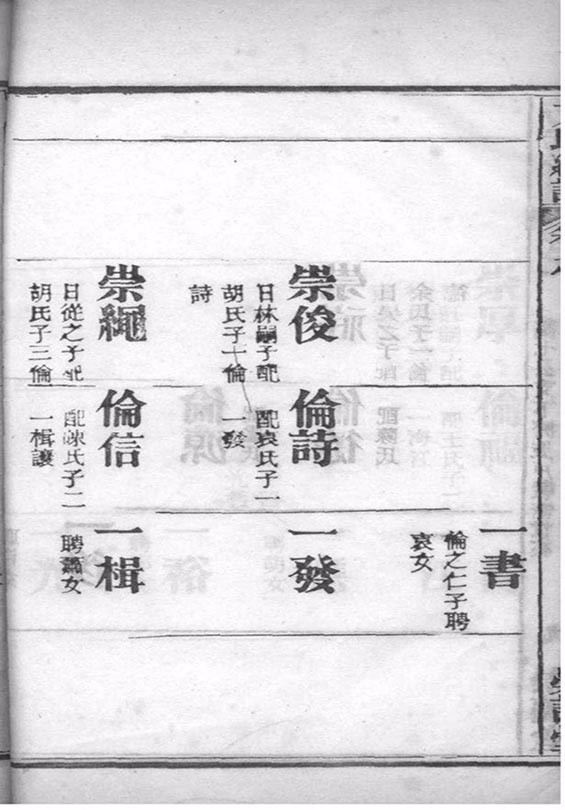 一書
倫之仁子聘
袁女
崇俊
日林嗣子配
胡氏子一倫
詩
倫詩
配袁氏子一
一發
一發
崇繩
日從之子配
胡氏子三倫
倫信
配陳氏子二
一楫讓
一楫
聘蕭女